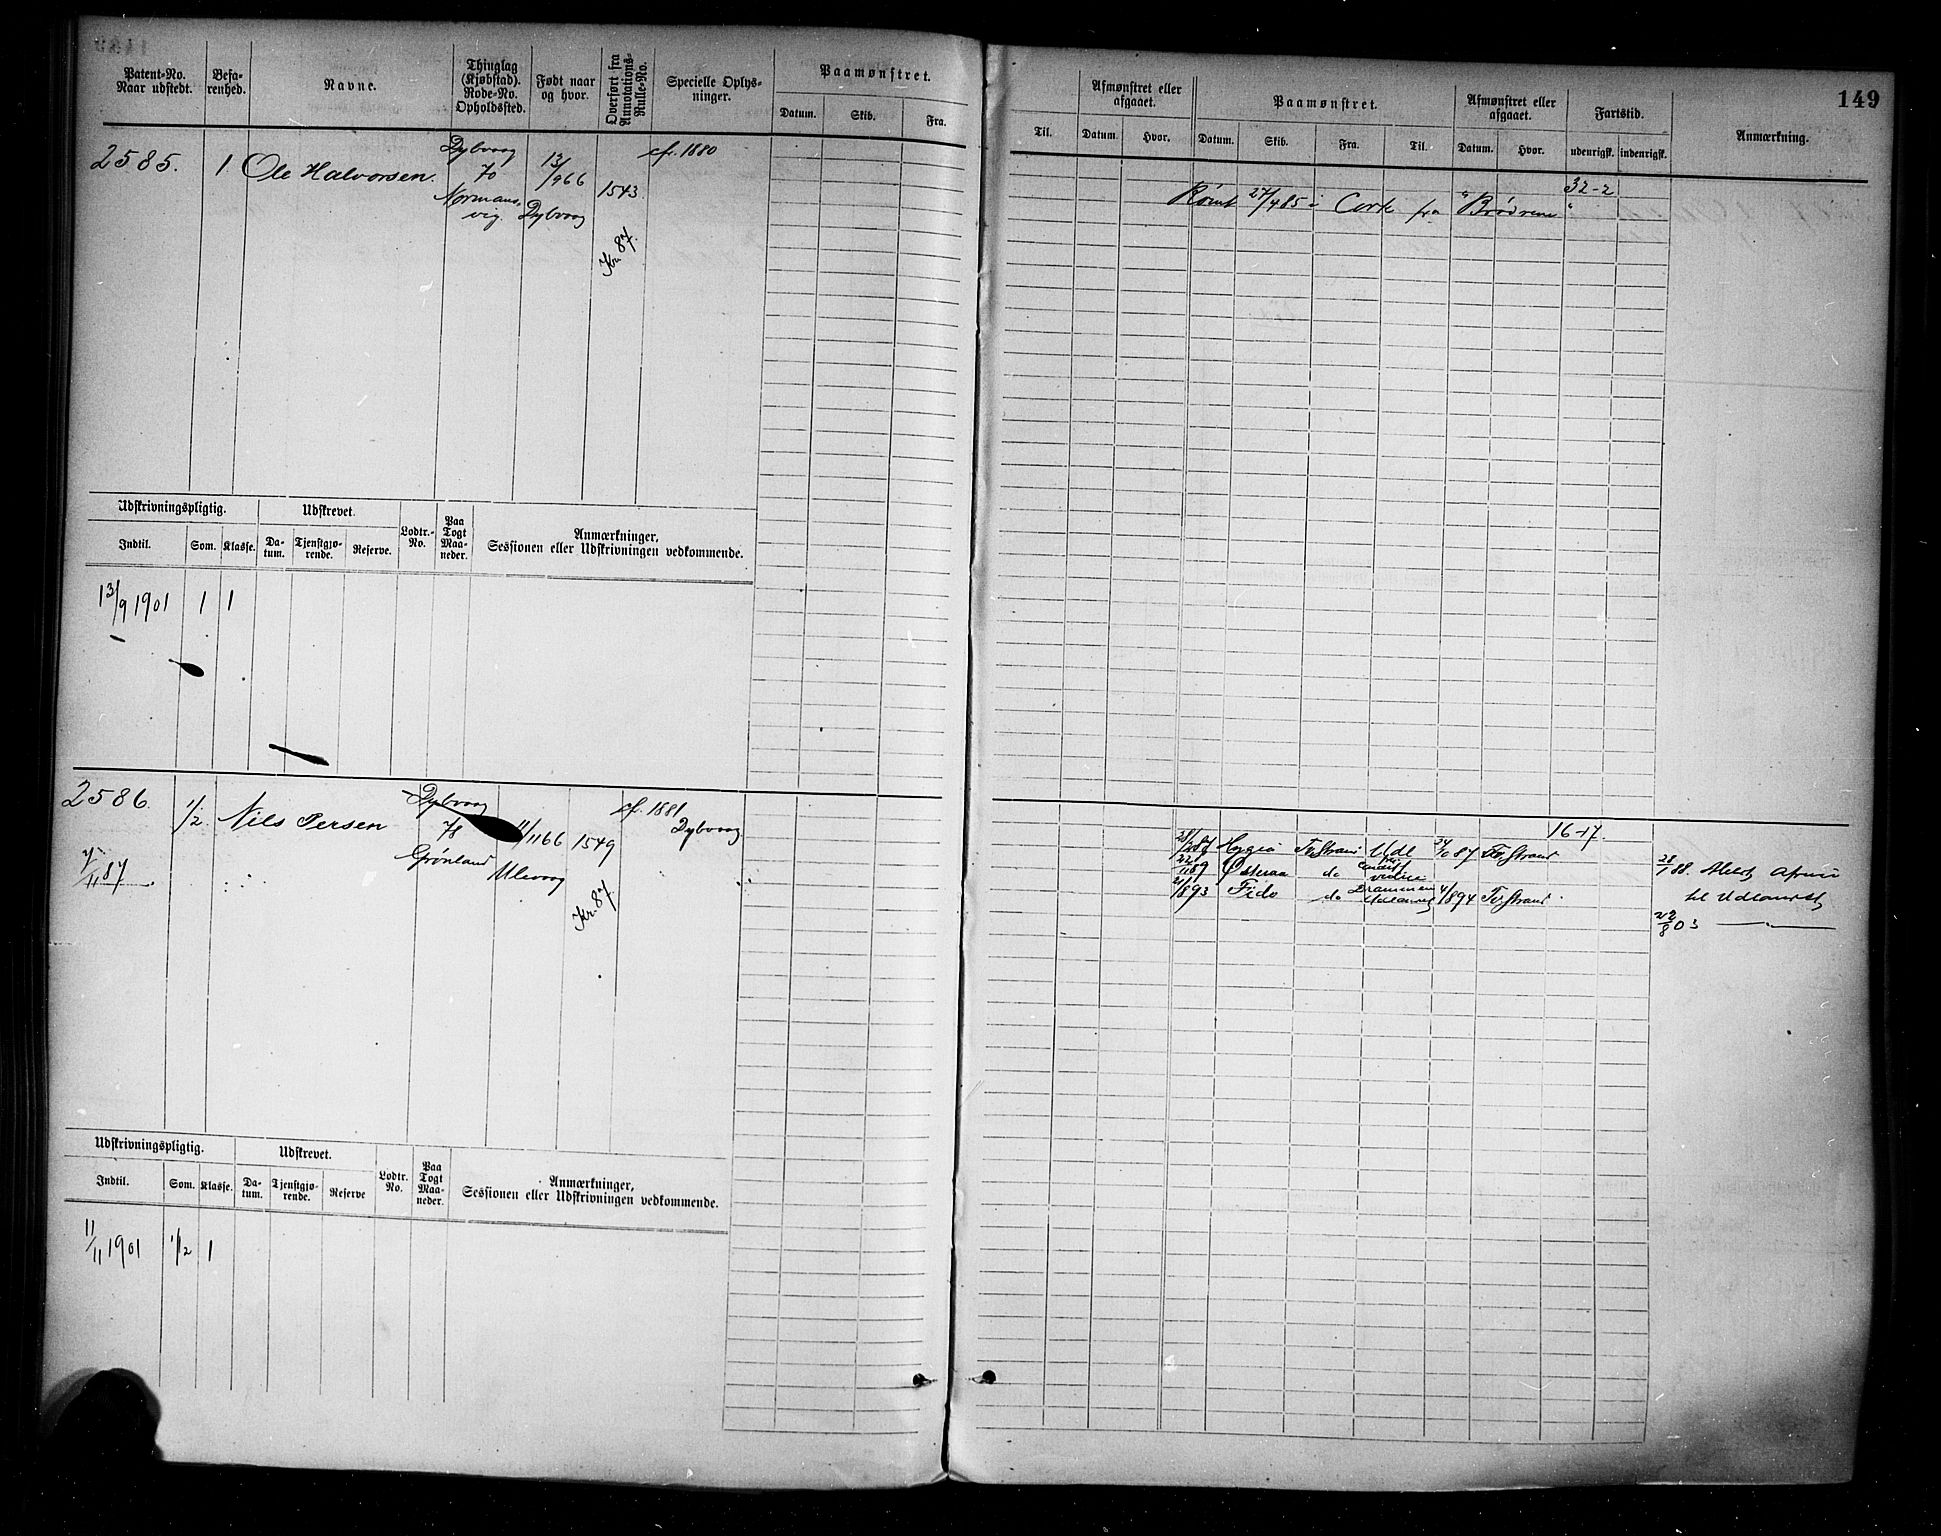 149
Patent-No. Naar udstedt.
Befa-renhed.
Navne.
Thinglag (Kjøbstad). Rode-No. Opholdssted.
Født naar og hvor.
Overført fra Annotations-Rulle-No.
Specielle Oplys-ninger.
Paamønstret.
Datum. Skib. Fra.
Til.
Afmønstret eller afgaaet.
Datum. Hvor.
Paamønstret.
Datum. Skib. Fra. Til.
Afmønstret eller afgaaet.
Datum. Hvor.
Fartstid.
udenrigsk. indenrigsk.
Anmærkning.
2585. 1. Ole Halvorsen.
Dybvaag
70
Normans-
vig.
13/966
Dybvaag
1543
Kr. 87.
cf. 1880
32-2
Rømt 27/485 i Cork fra "Brødrene"
Udskrivningspligtig. Udskrevet.
Indtil. Som. Klasse. Da-tum. Tjenstgjø-rende. Reserve. Lodtr.-No. Paa Togt Maa-neder.
Anmærkninger,
Sessionen eller Udskrivningen vedkommende.
13/9 1901 1 1
2586. 1/2 Nils Persen
7/11 87.
Dybvaag
78
Grønland
11/1166
Ulevaag
1549
Kr. 87
cf. 1881
Dybvaag
16-17
87 Hygea Tvedestrand Udl 87
do
893 Fido do Drammen Udlandet 4/894
28/ 88.
til Udlandet
22/8 03 — " —
Udskrivningspligtig. Udskrevet.
Indtil. Som. Klasse. Da-tum. Tjenstgjø-rende. Reserve Lodtr. No. Paa Togt Maa-neder.
Anmærkninger,
Sessionen eller Udskrivningen vedkommende.
11/11 1901 1/2 1